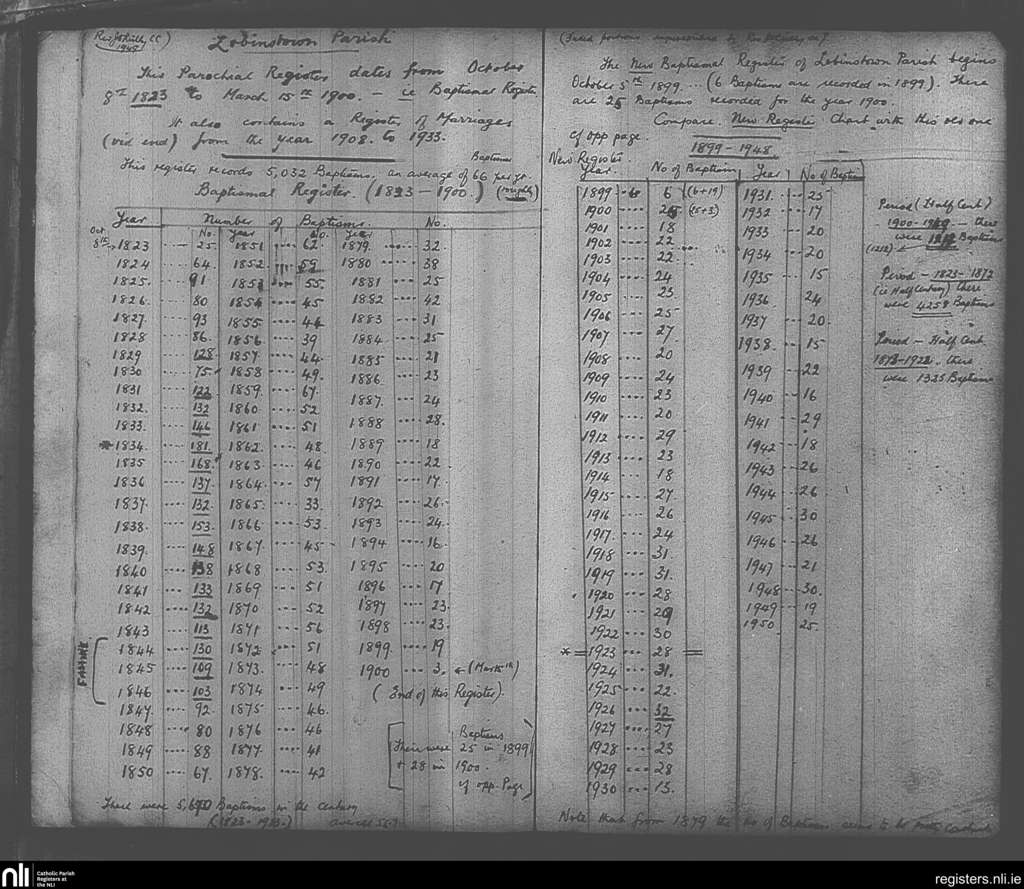 Lobinstown Parish
This Parochial Register dates from October
8th 1823 to March 15th 1900. — ie Baptismal Register
It also contains a Register of Marriages
(vid end) from the year 1908 to 1933.
This register records 5,032 Baptisms, an average of 66 per yr.
Baptismal Register. (1823 – 1900.) (roughly)
Year Number of Baptisms. No.
No. Year No. Year
Oct 8th 1823 25 1851 62 1879 32
1824 64 1852 59 1880 38
1825 91 1853 55 1881 25
1826 80 1854 45 1882 42
1827 93 1855 44 1883 31
1828 86 1856 39 1884 25
1829 128 1857 44 1885 21
1830 75 1858 49 1886 23
1831 122 1859 67 1887 24
1832 132 1860 52 1888 28
1833 146 1861 51 1889 18
* 1834 181 1862 48 1890 22
1835 168 1863 46 1891 17
1836 137 1864 57 1892 26
1837 132 1865 33 1893 24
1838 153 1866 53 1894 16
1839 148 1867 45 1895 20
1840 138 1868 53 1896 17
1841 133 1869 51 1897 23
1842 132 1870 52 1898 23
1843 113 1871 56 1899 19
1844 130 1872 51 1900 3 ← (March)
FAMINE
1845 109 1873 48
1846 103 1874 49
(End of this Register)
1847 92 1875 46
1848 80 1876 46
1849 88 1877 41
1850 67 1878 42
Baptisms
There were 25 in 1899
+ 28 in 1900.
cf opp. Page
There were Baptisms in the Century
The New Baptismal Register of Lobinstown Parish begins
October 5th 1899 ... (6 Baptisms are recorded in 1899). There
are 25 Baptisms recorded for the year 1900.
Compare New Register Chart with this old one
cf opp page.
1899 – 1948.
New Register.
Year. No of Baptism Year No of Baptism
1899 6 (6+19) 1931 25
1900 25 (25+3) 1932 17
1901 18 1933 20
1902 22 1934 20
1903 22 1935 15
1904 24 1936 24
1905 23 1937 20
1906 25 1938 15
1907 27 1939 22
1908 20 1940 16
1909 24 1941 29
1910 23 1942 18
1911 20 1943 26
1912 29 1944 26
1913 23 1945 30
1914 18 1946 26
1915 27 1947 21
1916 26 1948 30
1917 24 1949 19
1918 31 1950 25
1919 31
1920 28
1921 29
1922 30
* 1923 28
1924 31
1925 22
1926 32
1927 27
1928 23
1929 28
1930 13
Period (Half Cent.)
there
were Baptisms
Period – 1823 – 1872
(ie Half Century) there
were 4258 Baptisms
Period – Half Cent.
1873 – 1922 .. there
were 1325 Baptisms
Note that from 1879 the no of Baptisms seems to be
nli Catholic Parish
Registers at
the NLI
registers.nli.ie